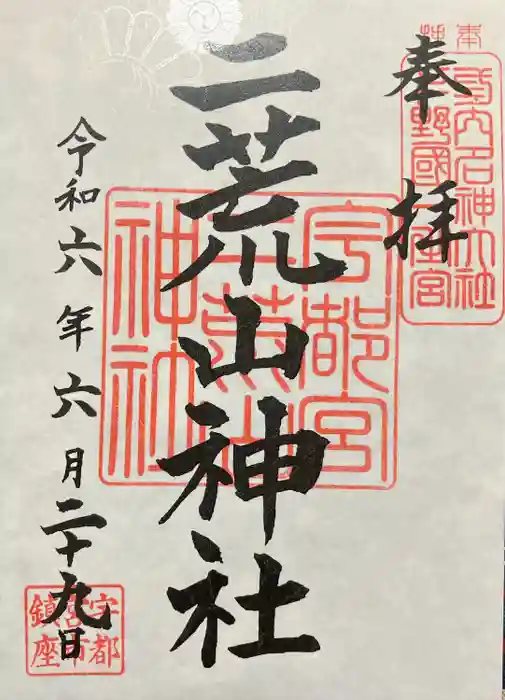 奉拝
式内名神大社
下野國一之宮
二荒山神社
宇都宮
二荒山
神社
令和六年六月二十九日
宇都
宮市
鎮座